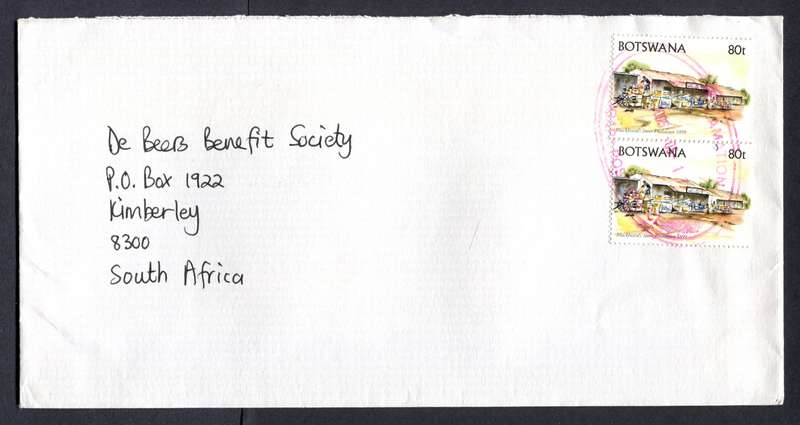 BOTSWANA 80t
BOTSWANA 80t
De Beers Benefit Society
P.O. Box 1922
Kimberley
8300
South Africa